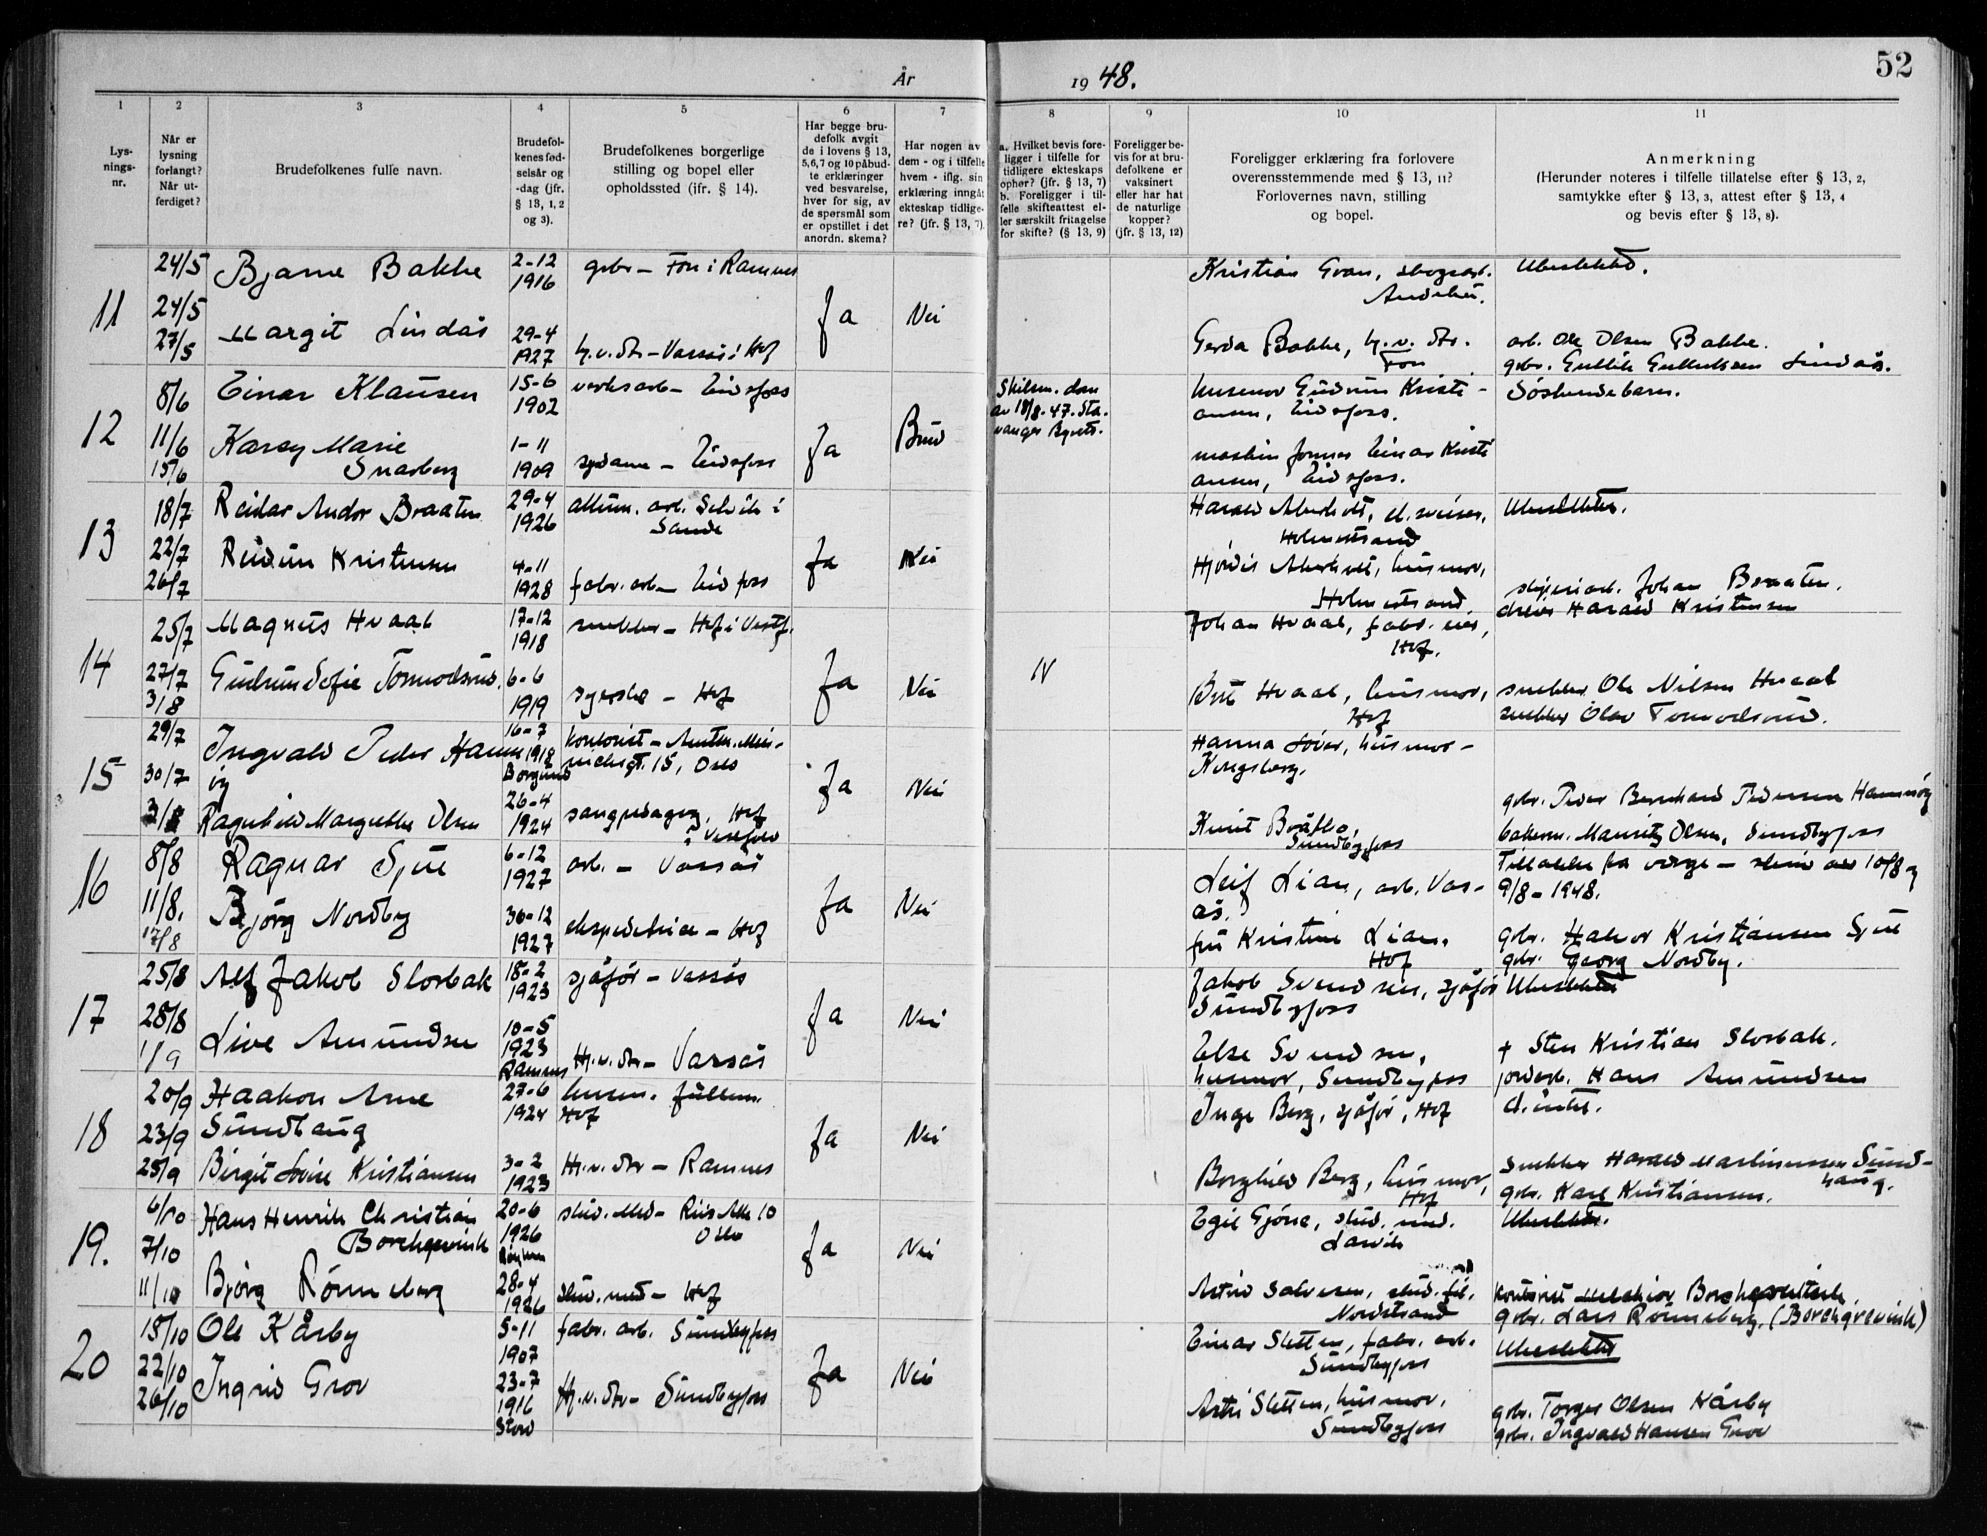 År
1948.
52
1
2
3
4
5
6
7
8
9
10
11
Lys-
nings-
nr.
Når er
lysning
forlangt?
Når ut-
ferdiget?
Brudefolkenes fulle navn.
Brudefol-
kenes fød-
selsår og
-dag (jfr.
§ 13, 1, 2
og 3).
Brudefolkenes borgerlige
stilling og bopel eller
opholdssted (jfr. § 14).
Har begge bru-
defolk avgit
de i lovens § 13,
5, 6, 7 og 10 påbud-
te erklæringer
ved besvarelse,
hver for sig, av
de spørsmål som
er opstillet i det
anordn. skema?
Har nogen av
dem - og i tilfelle
hvem - iflg. sin
erklæring inngåt
ekteskap tidlige-
re? (jfr. § 13, 7).
a. Hvilket bevis fore-
ligger i tilfelle for
tidligere ekteskaps
ophør? (jfr. § 13, 7)
b. Foreligger i til-
felle skifteattest el-
ler særskilt fritagelse
for skifte? (§ 13, 9)
Foreligger be-
vis for at bru-
defolkene er
vaksinert
eller har hat
de naturlige
kopper?
(jfr. § 13, 12)
Foreligger erklæring fra forlovere
overensstemmende med § 13, 11?
Forlovernes navn, stilling
og bopel.
Anmerkning
(Herunder noteres i tilfelle tillatelse efter § 13, 2,
samtykke efter § 13, 3, attest efter § 13, 4
og bevis efter § 13, 8).
11
24/5 Bjarne Bakke 2-12 1916 gbr - Fon i Ramnes
24/5
27/5 Margit Lindås 29-4 1927 h.v.dtr - Vassås i Hof
Ja Nei
Kristian Gran,
Gerda Bakke, h.v. dtr. Fon
Ubeslektet.
arb. Ole Olsen Bakke.
gbr. Gullik Gulliksen Lindås.
12
8/6 Einar Klausen 15-6 1902 verksarb - Eidsfoss
11/6
15/6 Karen Marie Snarberg 1-11 1909 sydame - Eidsfoss
Ja Brud
Skilsm. dom
av 18/8-47. Sta-
vanger Byrett.
husmor Gudrun Kristi-
ansen, Eidsfoss.
maskinformer Einar Kristi
ansen, Eidsfoss.
Søskendebarn.
13
18/7 Reidar Andor Braaten 29-4 1926 allum. arb. Selvik i
Sande
22/7
26/7 Reidun Kristensen 4-11 1928 fabr. arb - Eidsfoss
Ja Nei
Holmestrand
Hjördis husmor,
Holmestrand
Ubeslektet.
Johan Braaten.
Harald Kristensen
14
25/7 Magnus Hvaal 17-12 1918 snekker - Hof i Vestf.
27/7
3/8 Gudrun Sofie Tormodsrud. 6-6 1919 syerske - Hof
Ja Nei N
Johan Hvaal,
Hof.
Hvaal, husmor,
Hof
snekker Ole Nilsen Hvaal
snekker Olav Tormodsrud.
15
29/7 Ingvald Peder Hamn
öy 16-7 1918
Borgund
kontorist -
Oslo
30/7
3/8 Ragnhild Margrethe Olsen 26-4 1924 sangpedagog, Hof
i Vestfold
Ja Nei
Hanna husmor -
Kongsberg.
Knut Bråtlo,
Sundbyfoss
gbr. Peder Bernhard Pedersen Hamnöy
bakerm. Mauritz Olsen, Sundbyfoss
16
8/8 Ragnar Sjue 6-12 1927 arb. - Vassås
11/8.
17/8 Björg Nordby 30-12 1927 ekspeditrise - Hof
Ja Nei
Leif Lian, arb. Vas-
ås.
fru Kristine Lian.
Hof
Tillatelse fra verge - 10/8 og
9/8-1948.
gbr. Halvor Kristiansen Sjue
gbr. Georg Nordby.
17
25/8 Alf Jakob Slorbak 18-2 1923 sjåför - Vassås
28/8
1/9 Live Amundsen 10-5 1923
Ramnes Hj.v.dtr - Vassås
Ja Nei
Jakob Svendsen, sjåför
Sundbyfoss
Else Svendsen,
husmor, Sundbyfoss
Ubeslektet
† Sten Kristian Slorbak.
jordarb. Hans Amundsen
18
20/9 Haakon Arne
Sundhaug 27-6 1924
Hof
23/9
25/9 Birgit Lovise Kristiansen 3-2 1923 Hj.v.dtr - Ramnes
Ja Nei
Inge Berg, sjåför, Hof
Borghild Berg, husmor,
Hof
snekker Harald Martinussen Sund-
haug.
gbr. Karl Kristiansen.
19.
6/10 Hans Henrik Christian
Borchgrevink 20-6 1926 stud. med - Riis Alle 10
Oslo
7/10
11/10 Björg Rönneberg 28-4 1926 stud. med - Hof
Ja Nei
Egil Gjöne, stud. med.
Larvik
Astrid Salvesen, stud. fil.
Nordstrand
Ubeslektet.
Kontorist Melchior Borchgrevink
gbr. Lars Rönneberg. (Borchgrevink)
20
18/10 Ole Kårby 5-11 1907 fabr. arb. Sundbyfoss
22/10
26/10 Ingrid Grov 23-7 1916
Stord Hj.v.dtr - Sundbyfoss
Ja Nei
Einar Sletten, fabr. arb.
Sundbyfoss
Astri Sletten, husmor,
Sundbyfoss
Ubeslektet
gbr. Torger Olsen Kårby
gbr. Ingvald Hansen Grov